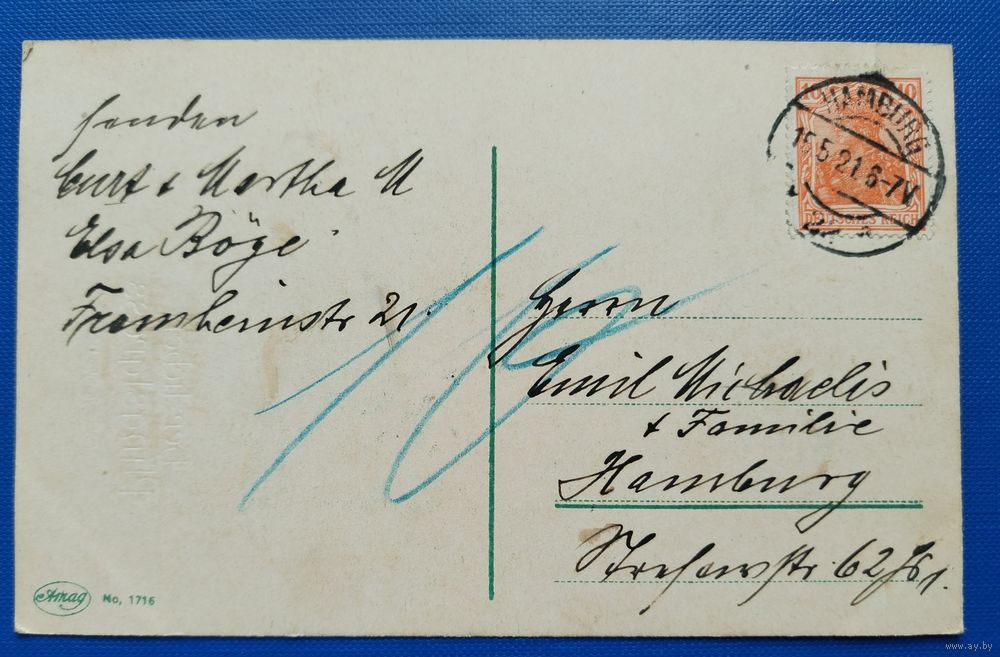 senden
Curt & Martha M
Elsa Böge
Frombeinstr 21.
10
10 10
DEUTSCHES REICH
HAMBURG
15.5.21.6-7V
Herrn
Emil Michaelis
& Familie
Hamburg
62
Amag No, 1716
www.ay.by